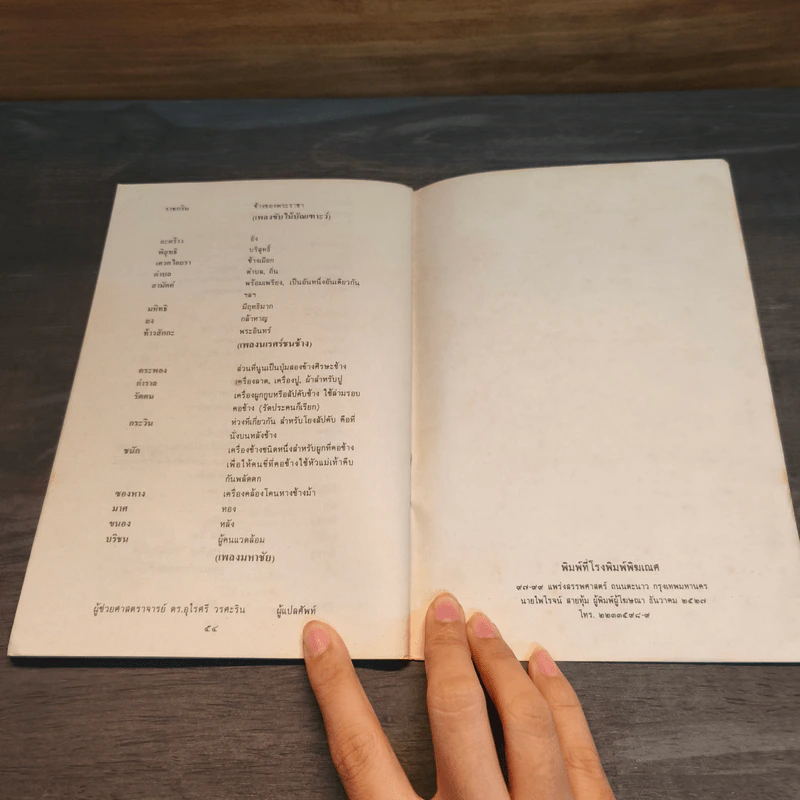 ราชกริน ช้างของพระราชา
(เพลงขับไม้บัณเฑาะว์)
ยัง
พิสุทธิ บริสุทธิ์
เศวตไอยรา ช้างเผือก
ดำบล ตำบล, ถิ่น
สามัคค์ พร้อมเพรียง, เป็นอันหนึ่งอันเดียวกัน
ฯลฯ
มหิทธิ มีฤทธิมาก
อง กล้าหาญ
ท้าวสักกะ พระอินทร์
(เพลงนเรศร์ชนช้าง)
ตระพอง ส่วนที่นูนเป็นปุ่มสองข้างศีรษะช้าง
ดำราล เครื่องลาด, เครื่องปู, ผ้าสำหรับปู
รัตคน เครื่องผูกกูบหรือสัปคับช้าง ใช้ล่ามรอบ
คอช้าง (รัดประคนก็เรียก)
กระวิน ห่วงที่เกี่ยวกัน สำหรับโยงสัปคับ คือที่
นั่งบนหลังช้าง
ชนัก เครื่องช้างชนิดหนึ่งสำหรับผูกที่คอช้าง
เพื่อให้คนขี่ที่คอช้างใช้หัวแม่เท้าคีบ
กันพลัดตก
ซองหาง เครื่องคล้องโคนหางช้างม้า
มาศ ทอง
ขนอง หลัง
บริชน ผู้คนแวดล้อม
(เพลงมหาชัย)
ผู้ช่วยศาสตราจารย์ ดร.อุไรศรี วรศะริน ผู้แปลศัพท์
๕๔
พิมพ์ที่โรงพิมพ์พิฆเณศ
๙๗-๙๙ แพร่งสรรพศาสตร์ ถนนตะนาว กรุงเทพมหานคร
นายไพโรจน์ สายทุ้ม ผู้พิมพ์ผู้โฆษณา ธันวาคม ๒๕๒๗
โทร. ๒๒๓๓๕๙๘-๙